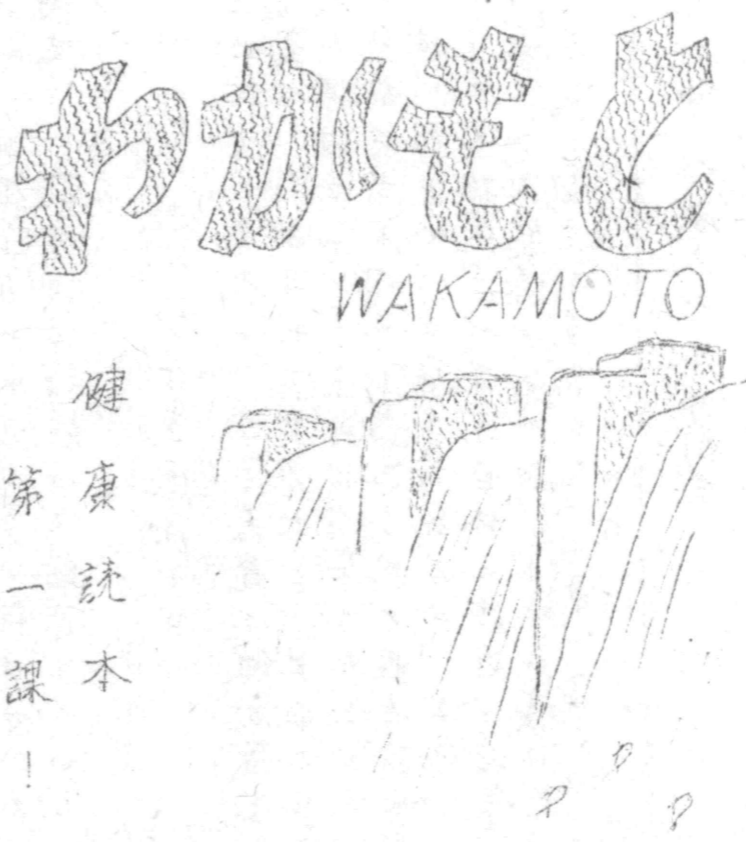 わかもと
WAKAMOTO
健康読本
第一課!